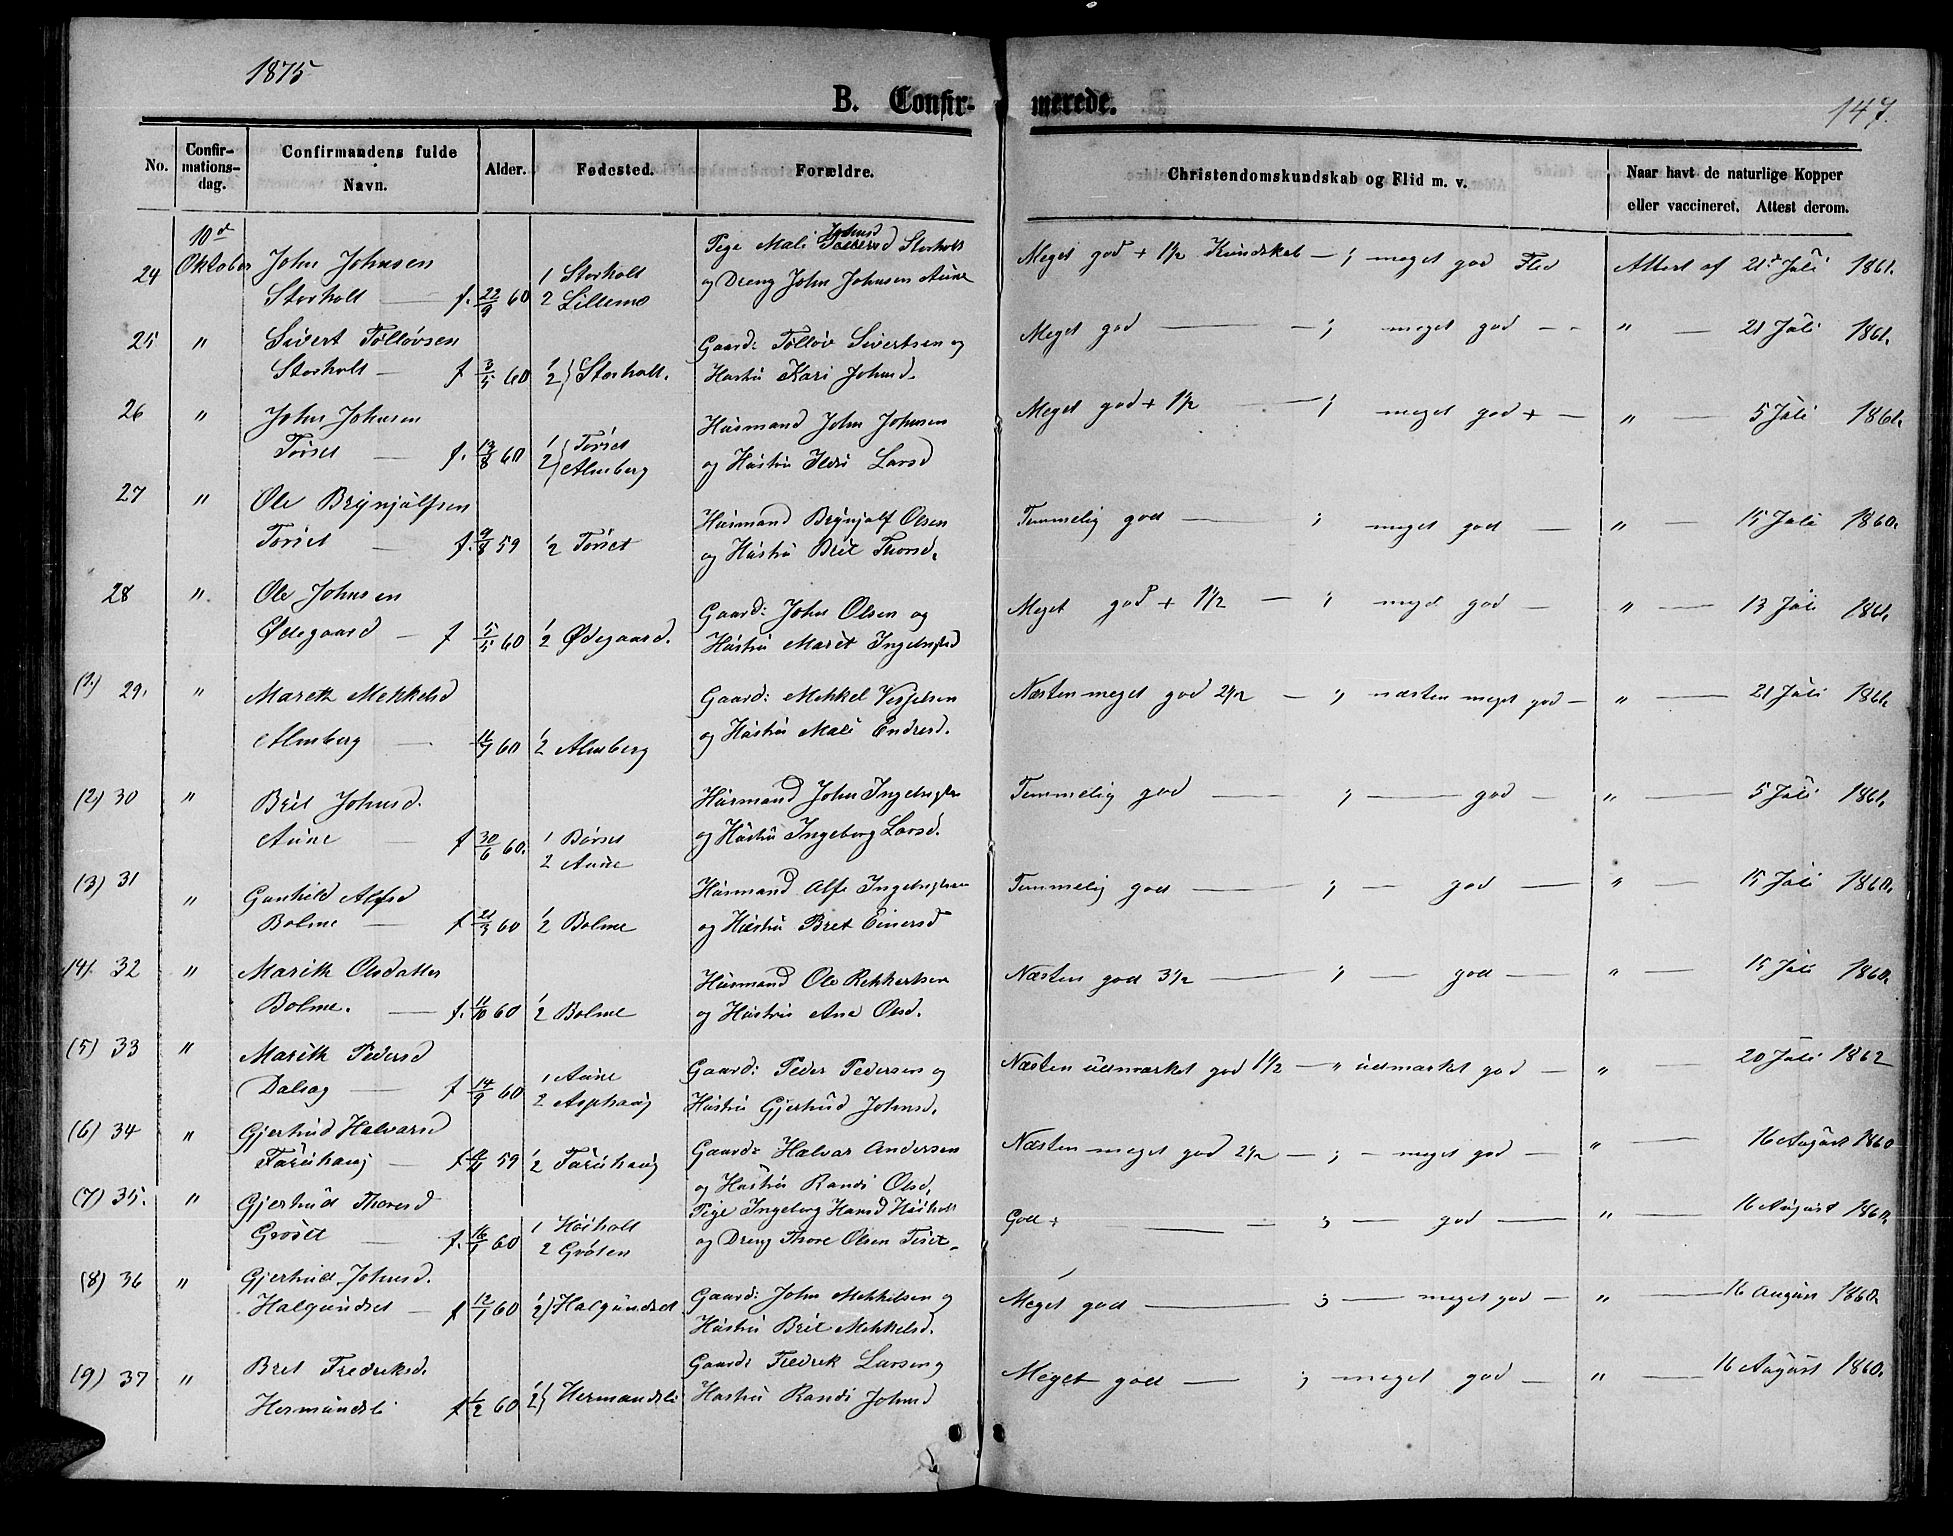 1875
B. Confirmerede.
147.
No. Confirmationsdag. Confirmandens fulde Navn. Alder. Fødested. Forældre. Christendomskundskab og Flid m. v. Naar havt de naturlige Kopper eller vaccineret. Attest derom.
10d
24 Oktober John Johnsen 1 Storholt Pige Mali Johnsd Storholt Meget god + 1½ Kundskab — ; meget god Flid Attest af 21d Juli 1861.
Storholt — f. 22/9 60 2 Lillemo og Dreng John Johnsen Aune
25 " Sivert Tølløvsen Gaard: Tølløv Sivertsen og Meget god — ; meget god — " — 21 Juli 1861.
Storholt — f 3/5 60 1/2 } Storholt. Hustru Kari Johnsd.
26 " John Johnsen Husmand John Johnsen Meget god + 1½ — ; meget god + — " — 5 Juli 1861.
Torset — f. 13/8 60 1/2 } Torset Almberg og Hustru Ildri Larsd
27 " Ole Brynjulfsen Husmand Brynjulf Olsen Temmelig god — ; meget god — " — 15 Juli 1860.
Torset — f. 9/8 59 1/2 Torset og Hustru Brit Thorsd.
28 " Ole Johnsen Gaard: John Olsen og Meget god + 1½ — ; meget god — " — 13 Juli 1861.
Ødegaard — f 5/5 60 1/2 Ødegaard. Hustru Marit
(1.) 29. " Marith Mekkelsd Gaard: Mekkel Næsten meget god 2½ — ; næsten meget god — " — 21 Juli 1861.
Almberg — 60 1/2 Almberg og Hustru Mali Endresd.
(2) 30 " Brit Johnsd. Husmand John Temmelig god — ; — god — " — 5 Juli 1861.
Aune — f 30/6 60. 1 Børset 2 Aune og Hustru Ingeborg Larsd.
(3) 31 " Gunhild Alfsd Husmand Alfe Temmelig god — ; — god — " — 15 Juli 1860.
Bolme — f 21/3 60 1/2 Bolme og Hustru Bret Einersd
(4). 32 " Marith Olsdatter Husmand Ole Rekkertsen Næsten god 3½ — ; — god — " — 15 Juli 1860.
Bolme. — f. 11/10 60 1/2 Bolme og Hustru Ane Olsd.
(5) 33 " Marith Pedersd Gaard: Peder Pedersen og Næsten udmærket god 1½ — " udmærket god — " — 20 Juli 1862
Dalsøg — f 14/9 60 1 Aune 2 Asphaug Hustru Gjertrud Johnsd.
(6) 34 " Gjertrud Halvarsd Gaard: Halvar Andersen Næsten meget god 2½ — ; — meget god — " — 16 August 1860
Furuhaug — f 59 1/2 Furuhaug og Hustru Randi Olsd.
(7) 35. " Gjertrud Thoresd Pige Ingeborg Hansd Høiholt God + — ; — god — " — 16 August 1860.
Grøset — f. 16/1 60 1 Høiholt 2 Grøten og Dreng Thore Olsen
(8) 36 " Gjertrud Johnsd. Gaard: John Mekkelsen og Meget god — ; — meget god — " — 16 August 1860.
Halgundset — f 12/1 60 1/2 } Halgundset Hustru Brit Mekkelsd.
(9) 37 " Bret Fredriksd. Gaard: Fredrik Larsen og Meget god — ; meget god — " — 16 August 1860.
Hermundsli f 1/2 60 1/2 } Hermundsli Hustru Randi Johnsd